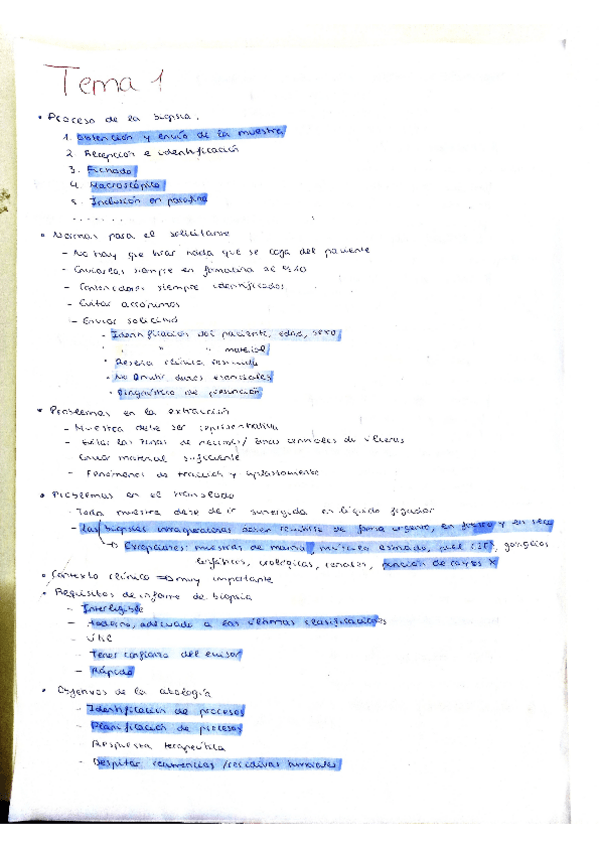 Tema 1
• Proceso de la biopsia.
1. Obtención y envío de la muestra
2. Recepción e identificación
3. Fichado
4. Macroscópico
5. Inclusión en parafina
.......
• Normas para el solicitante
- No hay que tirar nada que se coja del paciente
- Enviarlas siempre en formalina al
- Contenedores siempre identificados
- Evitar acrónimos
- Enviar solicitud
• Identificación del paciente, edad, sexo
" " " material
• Reseña clínica resumida
• No omitir datos esenciales
• Diagnóstico de presunción
• Problemas en la extracción
- Muestra debe ser representativa
- Evitar las zonas de necrosis/ áreas centrales de úlceras
Enviar material suficiente
- Fenómenos de tracción y aplastamiento
• Problemas en el translado
- Toda muestra debe de ir sumergida en líquido fijador
- Las biopsias intraoperatorias deben remitirse de forma urgente, en fresco y en seco
→ Excepciones: muestras de mama, músculo estriado, piel, ganglios
linfáticos, urológicas, renales, punción de rayos X
• Contexto clínico ⇒ muy importante
• Requisitos de informe de biopsia
- Inteligible
- Moderno, adecuado a las últimas clasificaciones
- Útil
- Tener confianza del emisor
- Rápido
• Objetivos de la atología
- Identificación de procesos
- Planificación de procesos
- Respuesta terapeútica
- Despitar recurrencias /recidivas tumorales